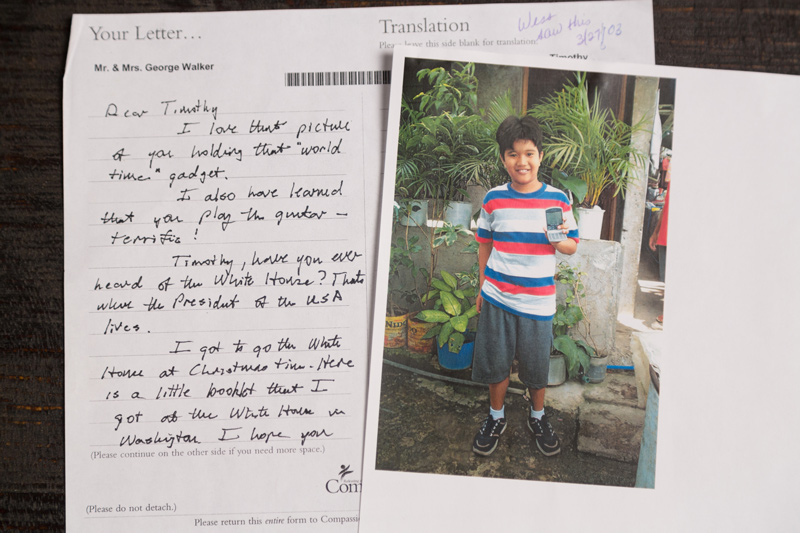 Your Letter...
Translation
West
saw this
3/27/03
Please leave this side blank for translation.
Mr. & Mrs. George Walker
Timothy
Dear Timothy
I love that picture
of you holding that "world
time" gadget.
I also have learned
that you play the guitar –
terrific!
Timothy, have you ever
heard of the White House? That's
where the President of the USA
lives.
I got to go the White
House at Christmas time. Here
is a little booklet that I
got at the White House in
Washington I hope you
(Please continue on the other side if you need more space.)
Com
(Please do not detach.)
Please return this entire form to Compassi